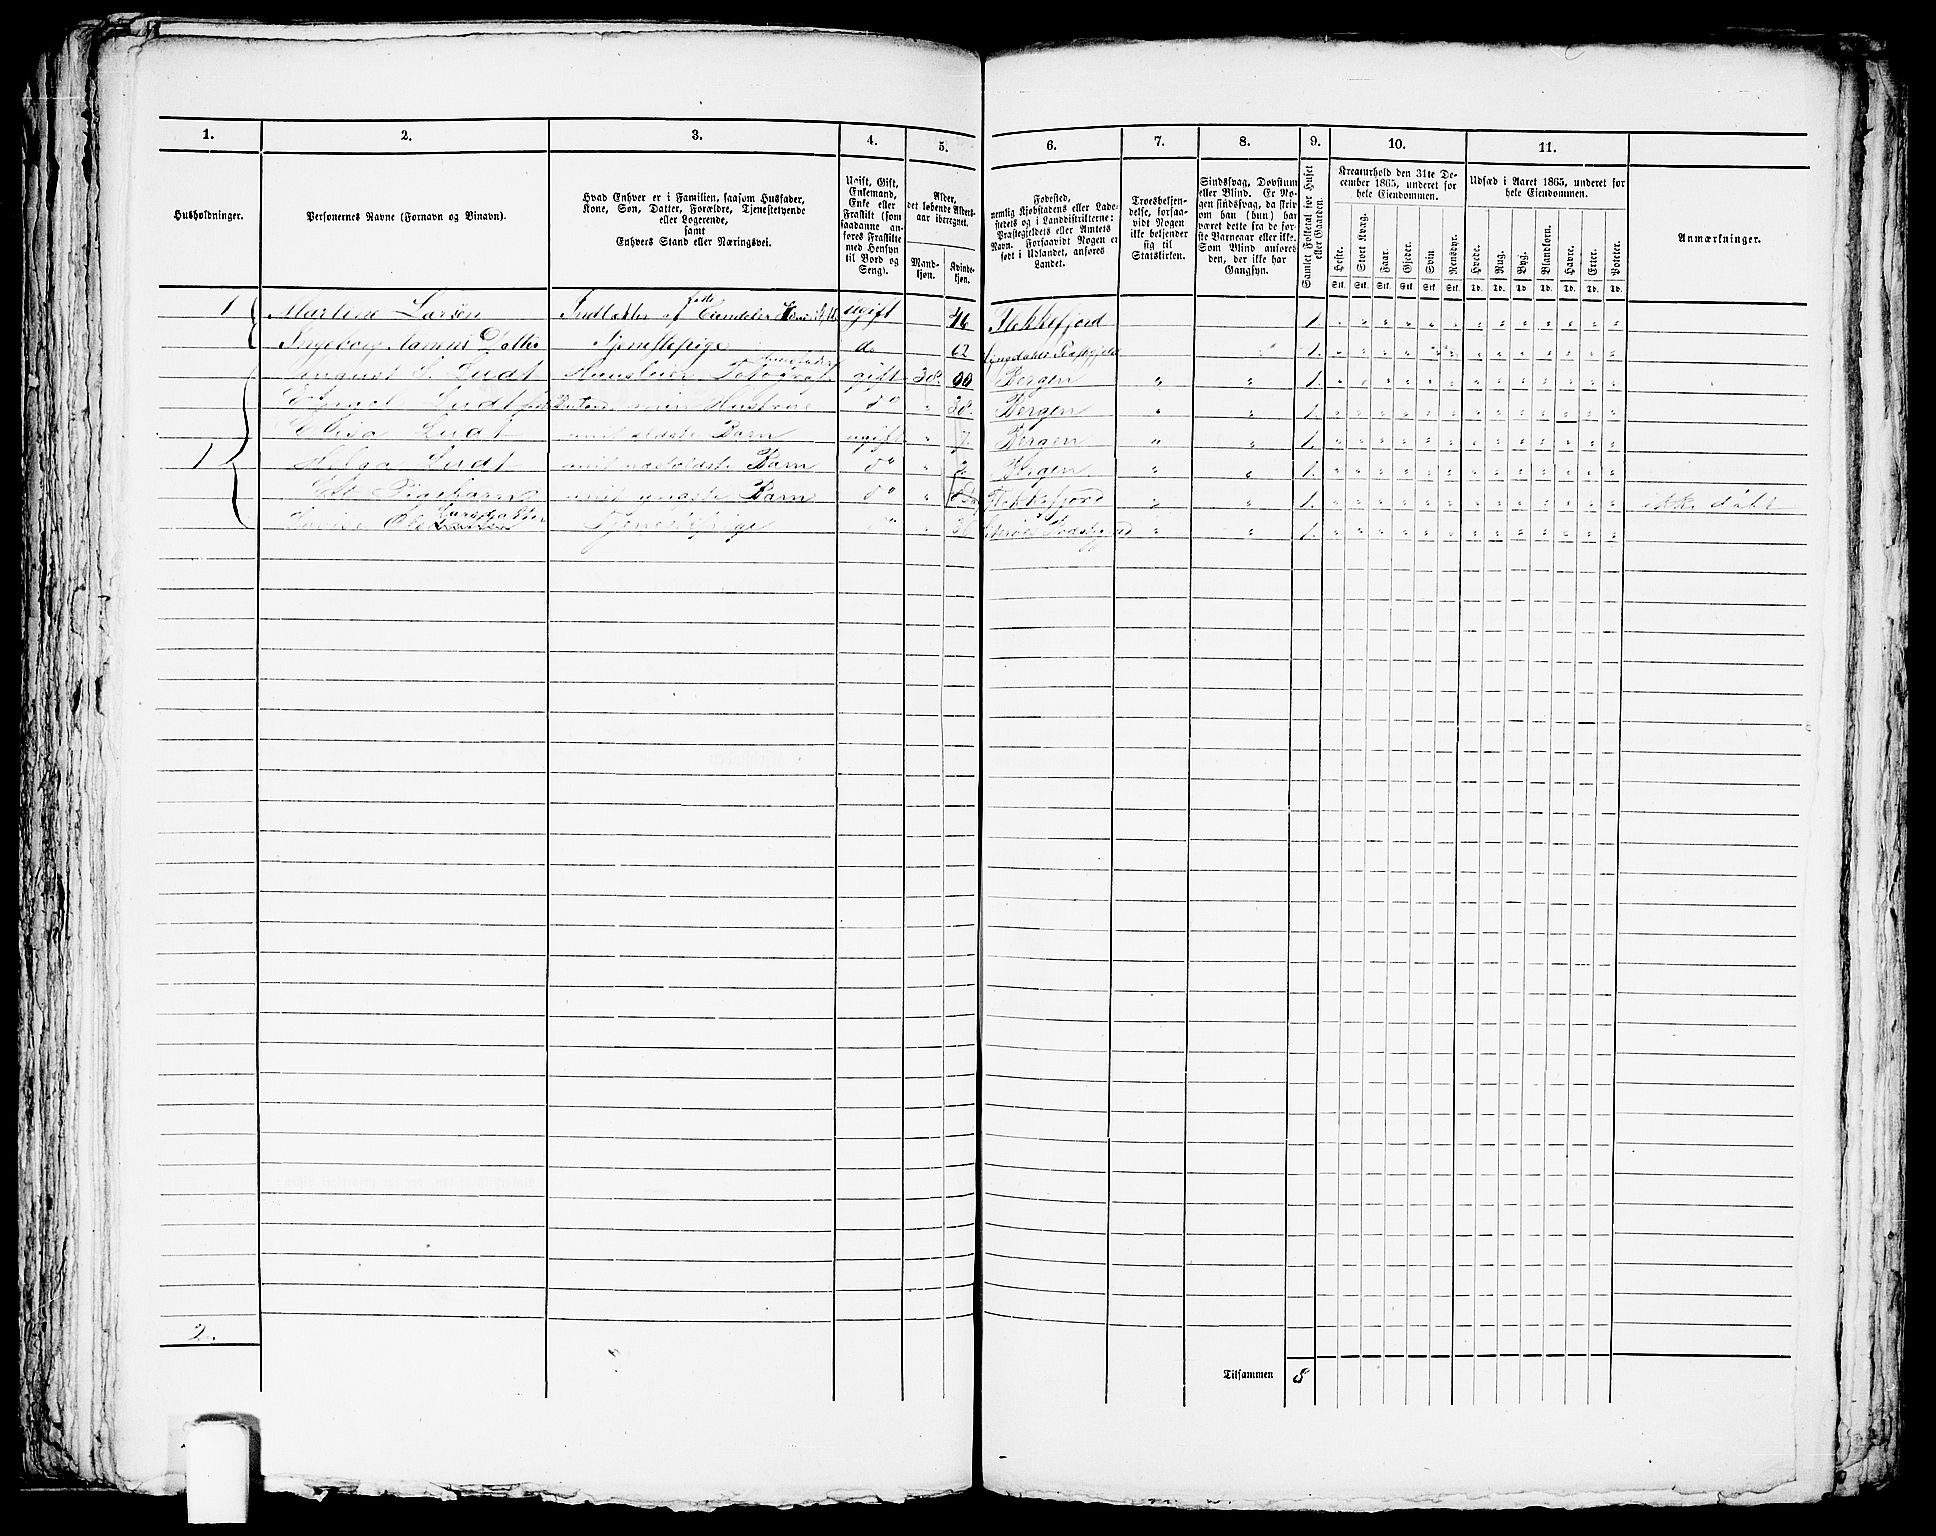 1. 2. 3. 4. 5. 6. 7. 8. 9. 10. 11.
Husholdninger.
Personernes Navne (Fornavn og Binavn).
Hvad Enhver er i Familien, saasom Husfader,
Kone, Søn, Datter, Forældre, Tjenestetyende
eller Logerende,
samt
Enhvers Stand eller Næringsvei.
Ugift, Gift,
Enkemand,
Enke eller
Fraskilt (som
saadanne an-
føres Fraskilte
med Hensyn
til Bord og
Seng).
Alder,
det løbende Alders-
aar iberegnet.
Mand-
kjøn.
Kvinde-
kjøn.
Fødested,
nemlig Kjøbstadens eller Lade-
stedets og i Landdistrikterne:
Præstegjeldets eller Amtets
Navn. Forsaavidt Nogen er
født i Udlandet, anføres
Landet.
Troesbekjen-
delse, forsaa-
vidt Nogen
ikke bekjender
sig til
Statskirken.
Sindssvag, Døvstum
eller Blind. Er No-
gen sindssvag, da skriv
om han (hun) har
været dette fra de før-
ste Barneaar eller ikke.
Som Blind anføres
den, der ikke har
Gangsyn.
Samlet Folketal for Huset
eller Gaarden.
Kreaturhold den 31te De-
cember 1865, underet for
hele Eiendommen.
Heste. Stort Kvæg. Faar. Gjeder. Svin Rensdyr.
Stk. Stk. Stk. Stk. Stk. Stk.
Udsæd i Aaret 1865, underet for
hele Eiendommen.
Hvede. Rug. Byg. Blandkorn. Havre. Erter. Poteter.
Td. Td. Td. Td. Td. Td. Td.
Anmærkninger.
1 Martine Larsen Indlakker af ugift 46 Flekkefjord 1.
Ingeborg Tjenestepige do 62 1.
August S. Lindt gift 38. Bergen " " 1.
Lindt min Hustrue do " 38. Bergen " " 1.
Lindt mit ældste Barn ugift " 7. Bergen " " 1.
1 Helga Lindt mit næstældste Barn do " 2 Bergen " " 1.
Et Pigebarn mit yngste Barn do " Flekkefjord " " 1. ikke døbt
Tjenestepige do " " " 1.
2.
Tilsammen 8